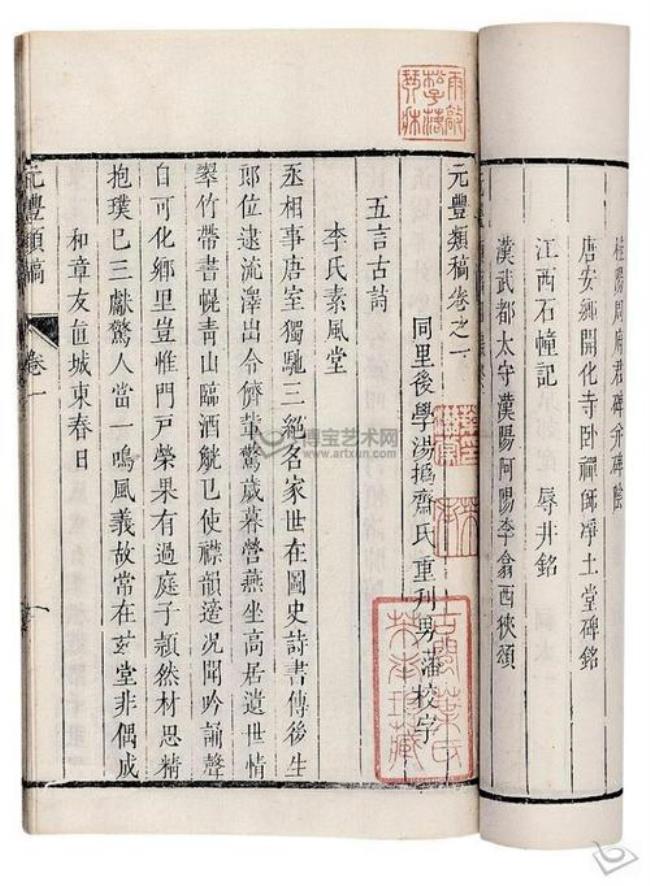 桂陽周府君碑并碑陰
唐安鄉開化寺卧禪師淨土堂碑銘
江西石幢記　辱井銘
漢武都太守漢陽阿陽李翕西狹頌
雨敲松子落琴牀
元豐類稿卷之一
同里後學湯撝齋氏重刊男藩校字
五言古詩
李氏素風堂
丞相事唐室獨馳三絕名家世在圖史詩書傳後生
郎位逮流澤出令儕輩驚歲暮營燕坐高居遺世情
翠竹帶書幌青山臨酒觥已使襟韻遠况聞吟誦聲
自可化鄉里豈惟門戶榮果有過庭子頴然材思精
抱璞已三獻驚人當一鳴風義故常在玆堂非偶成
和章友直城東春日
元豐類稿　卷一　一
博宝艺术网
www.artxun.com